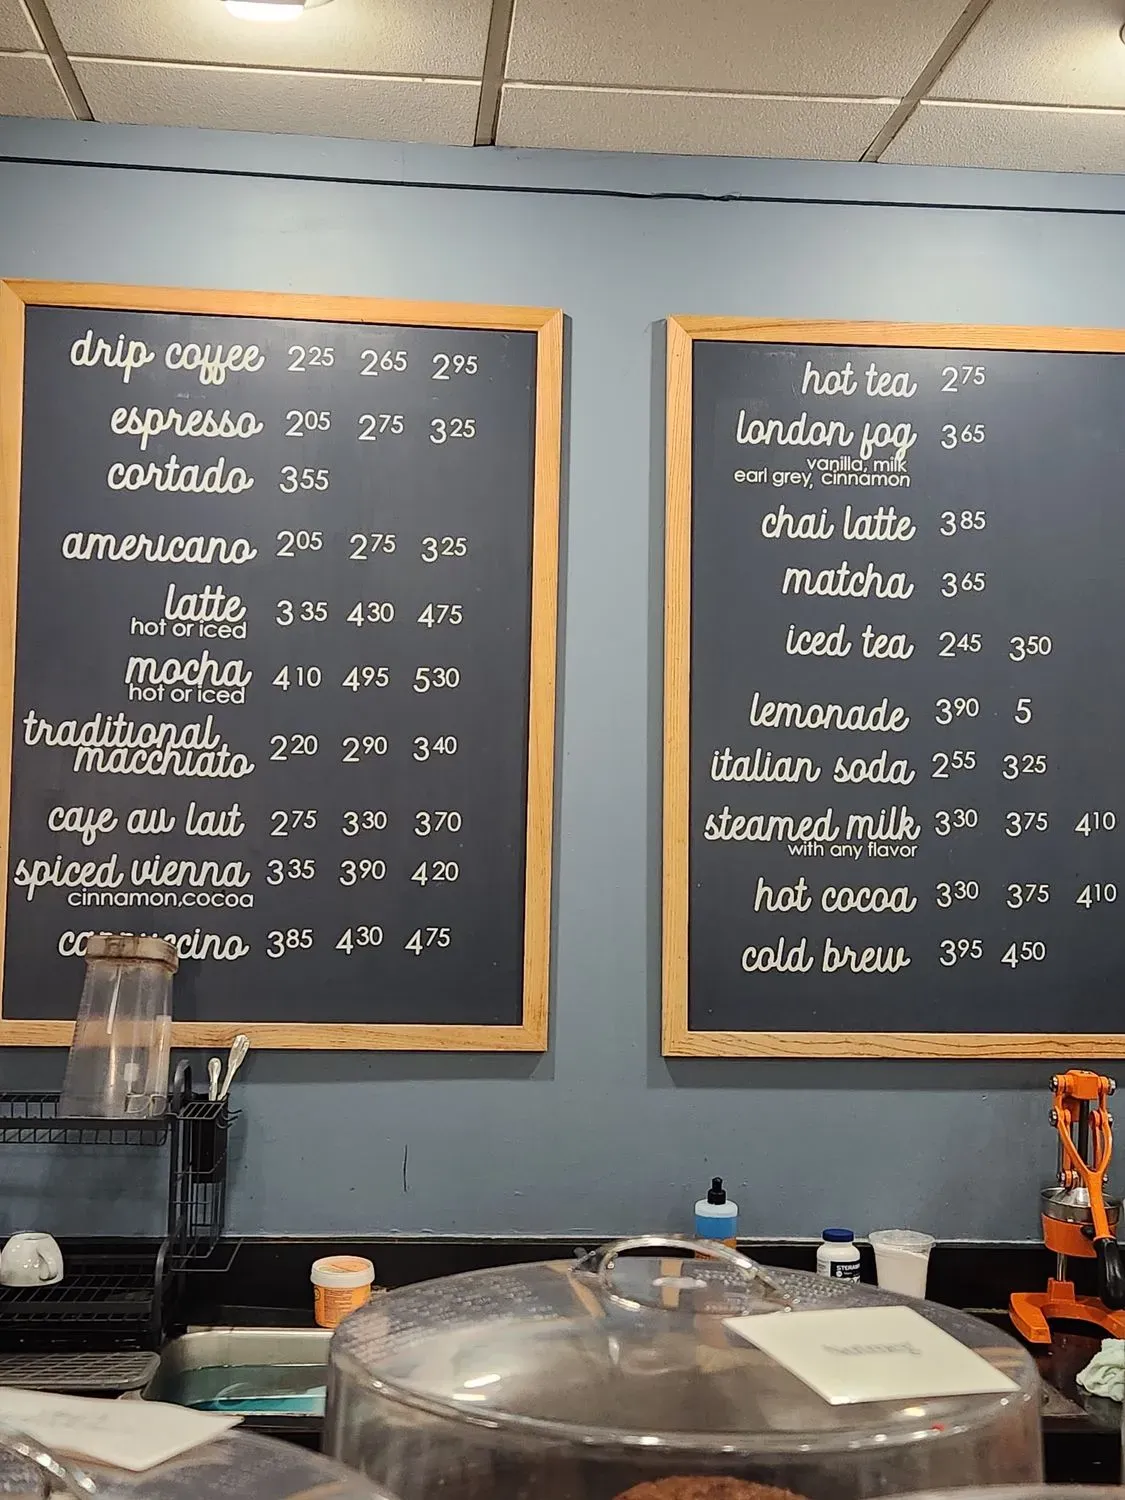 drip coffee 2 25 2 65 2 95
espresso 2 05 2 75 3 25
cortado 3 55
americano 2 05 2 75 3 25
latte 3 35 4 30 4 75
hot or iced
mocha 4 10 4 95 5 30
hot or iced
traditional
macchiato 2 20 2 90 3 40
cafe au lait 2 75 3 30 3 70
spiced vienna 3 35 3 90 4 20
cinnamon,cocoa
cappuccino 3 85 4 30 4 75
hot tea 2 75
london fog 3 65
vanilla, milk
earl grey, cinnamon
chai latte 3 85
matcha 3 65
iced tea 2 45 3 50
lemonade 3 90 5
italian soda 2 55 3 25
steamed milk 3 30 3 75 4 10
with any flavor
hot cocoa 3 30 3 75 4 10
cold brew 3 95 4 50